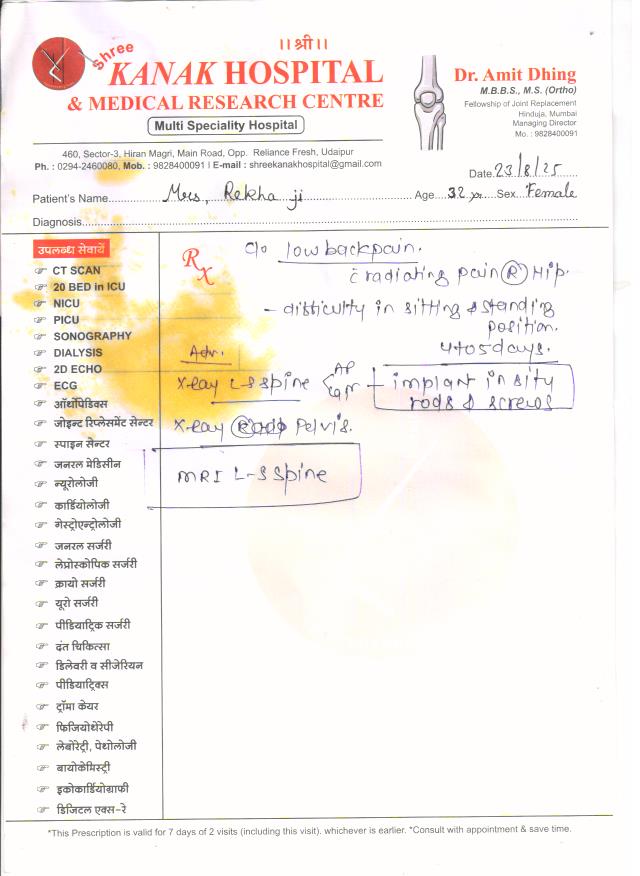 ।। श्री ।।
Shree
KANAK HOSPITAL
& MEDICAL RESEARCH CENTRE
Multi Speciality Hospital
460, Sector-3, Hiran Magri, Main Road, Opp. Reliance Fresh, Udaipur
Ph. : 0294-2460080, Mob. : 9828400091 I E-mail : shreekanakhospital@gmail.com
Dr. Amit Dhing
M.B.B.S., M.S. (Ortho)
Fellowship of Joint Replacement
Hinduja, Mumbai
Managing Director
Mo. : 9828400091
Date 23/8/25
Patient's Name Mrs, Rekha ji Age 32 yr Sex Female
Diagnosis
उपलब्ध सेवायें
CT SCAN
20 BED in ICU
NICU
PICU
SONOGRAPHY
DIALYSIS
2D ECHO
ECG
ऑर्थोपेडिक्स
जोइन्ट रिप्लेसमेंट सेन्टर
स्पाइन सेन्टर
जनरल मेडिसीन
न्यूरोलोजी
कार्डियोलोजी
गेस्ट्रोएन्ट्रोलोजी
जनरल सर्जरी
लेप्रोस्कोपिक सर्जरी
क्रायो सर्जरी
यूरो सर्जरी
पीडियाट्रिक सर्जरी
दंत चिकित्सा
डिलेवरी व सीजेरियन
पीडियाट्रिक्स
ट्रॉमा केयर
फिजियोथेरेपी
लेबोरेट्री, पेथोलोजी
बायोकेमिस्ट्री
इकोकार्डियोग्राफी
डिजिटल एक्स-रे
Rx
c/o low back pain.
c̄ radiating pain (R) Hip.
- difficulty in sitting & standing
position.
4 to 5 days.
Adv.
X-ray L-S spine AP - implant in sity
rods & screws
X-ray Pelvis.
MRI L-S spine
*This Prescription is valid for 7 days of 2 visits (including this visit). whichever is earlier. *Consult with appointment & save time.